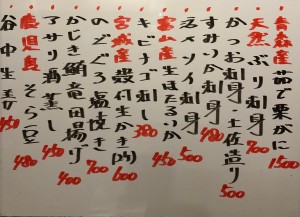 青森産 茹で栗がに 1500
天然 ぶり刺身 700
かつお刺身 土佐造り 500
すみいか刺身 480
活〆ソイ刺身 500
富山産 生ほたるいか 450
キビナゴ刺し 380
宮城産 殻付生かき(2ケ) 600
のどぐろ塩焼き 700
かじき鮪竜田揚げ 400
アサリ酒蒸し 450
鹿児島 そら豆 480
谷中生姜 450